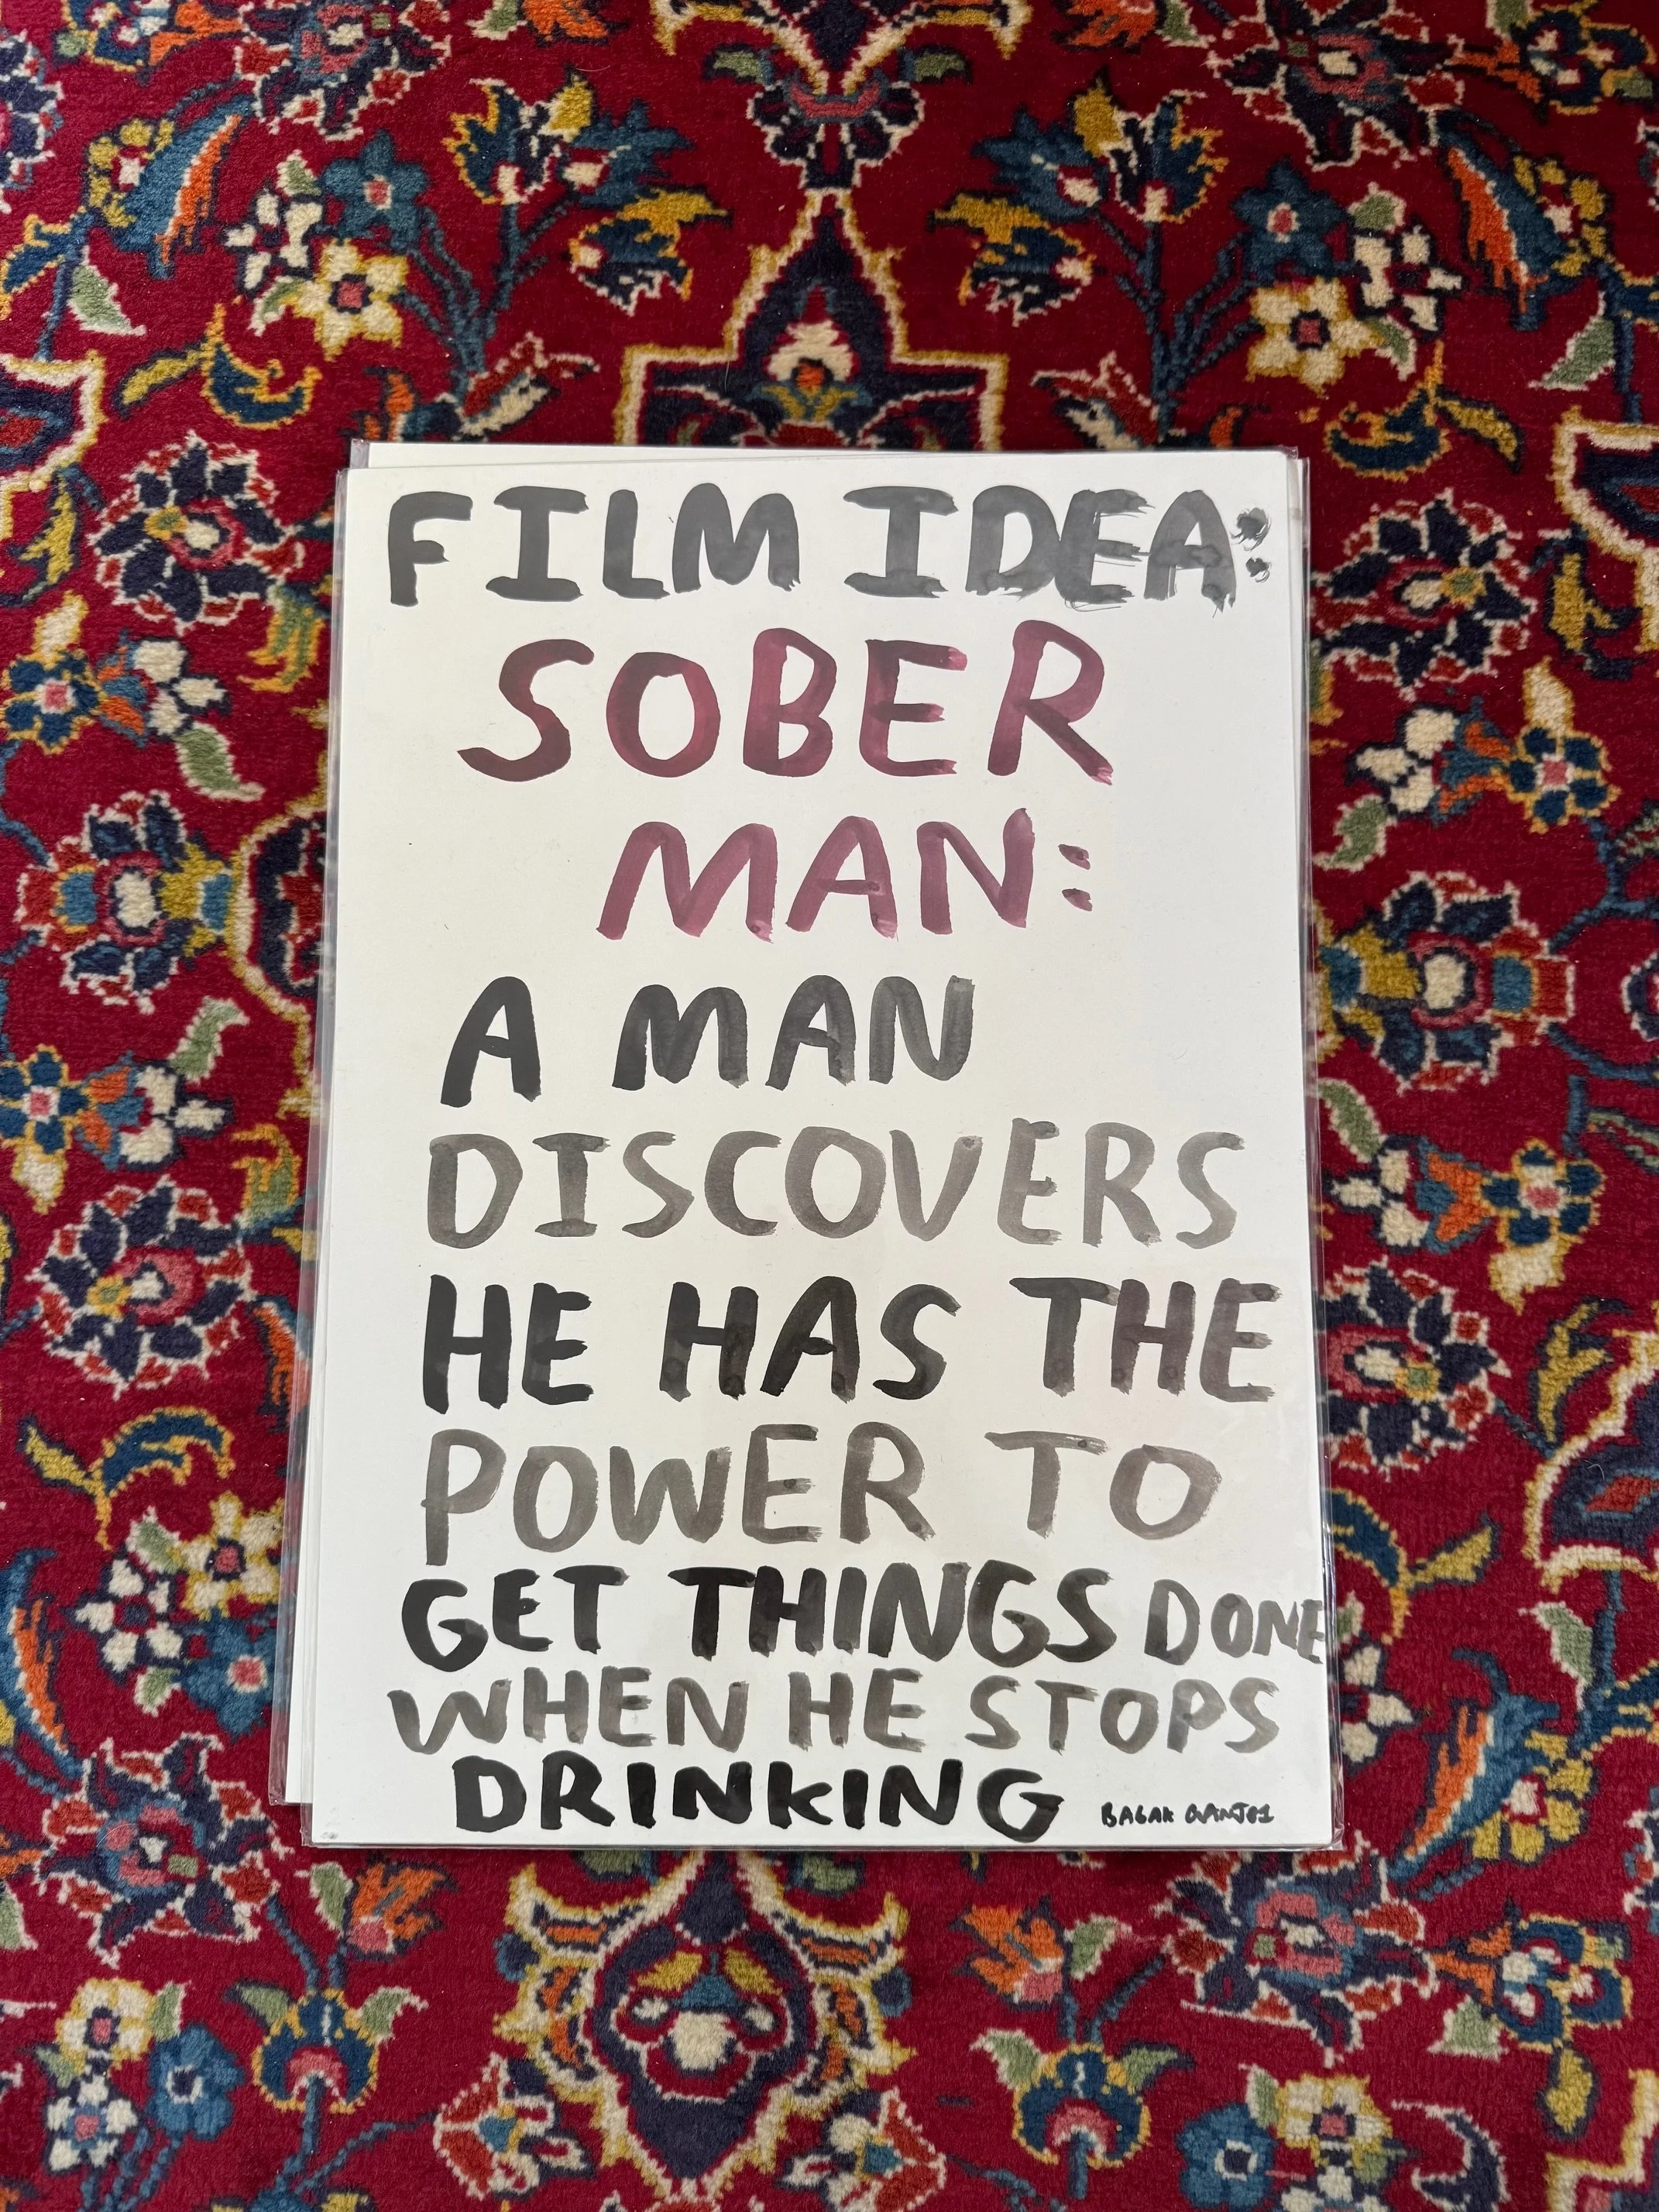 FILM IDEA:
SOBER
MAN:
A MAN
DISCOVERS
HE HAS THE
POWER TO
GET THINGS DONE
WHEN HE STOPS
DRINKING
BABAK GANJEI